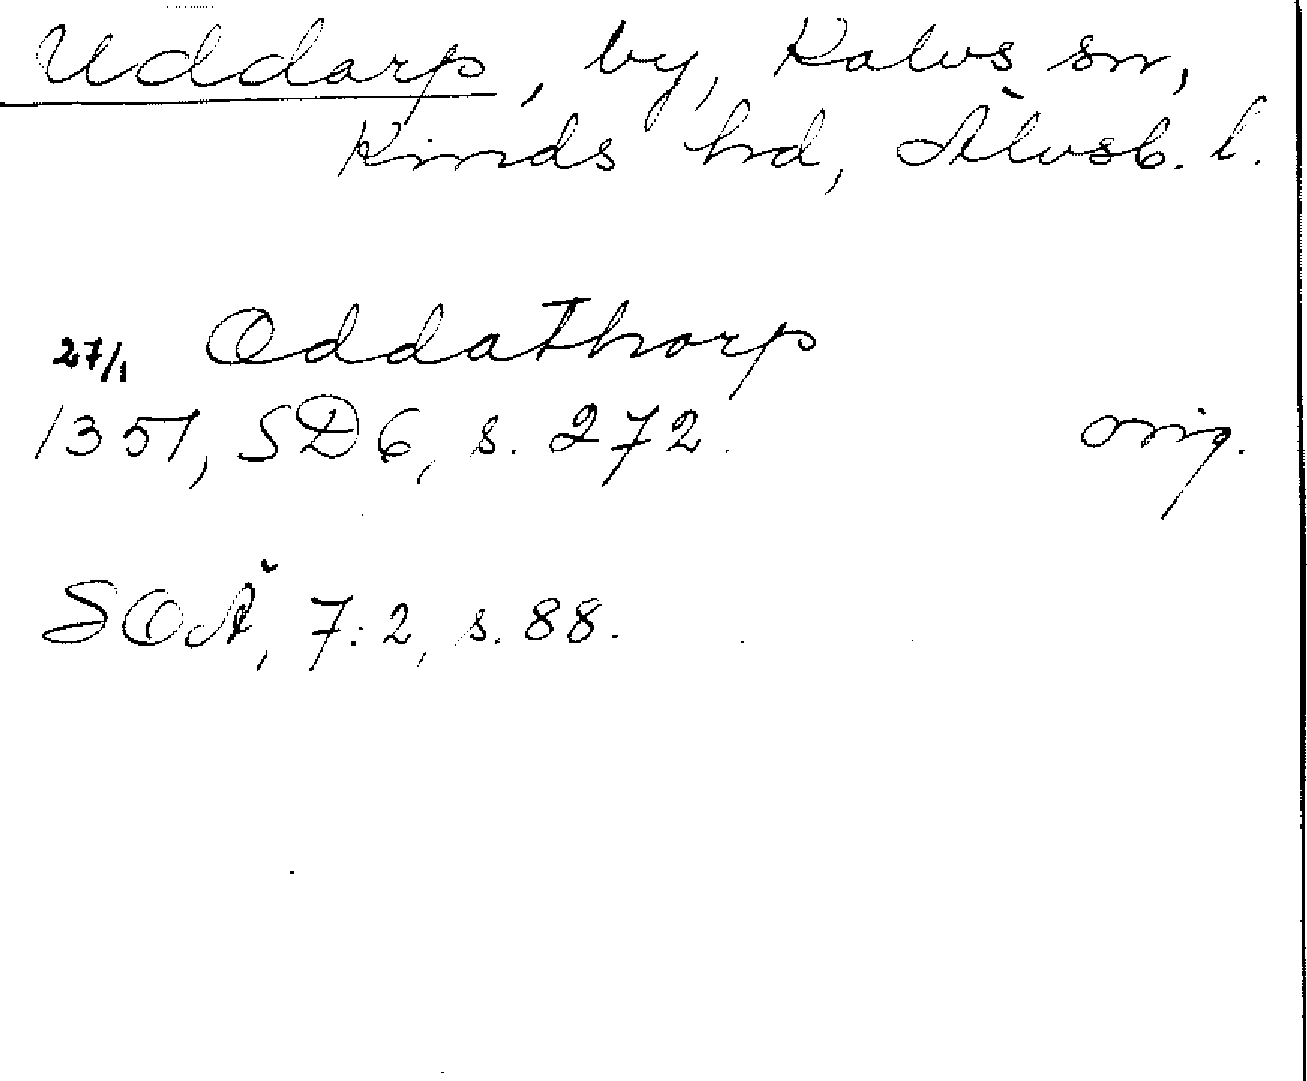 Uddarp, by, Kalvs sn,
Kinds hd, Älvsb. l.
27/1 Oddathorp
1351, SD 6, s. 272. orig.
SOÄ, 7:2, s. 88.